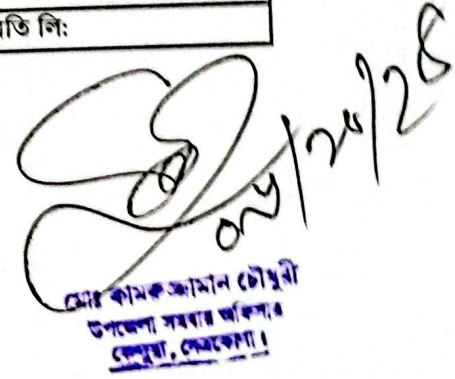 তি লি:
মোঃ কামরুজ্জামান চৌধুরী
উপজেলা সমবায় অফিসার
কেন্দুয়া, নেত্রকোণা।